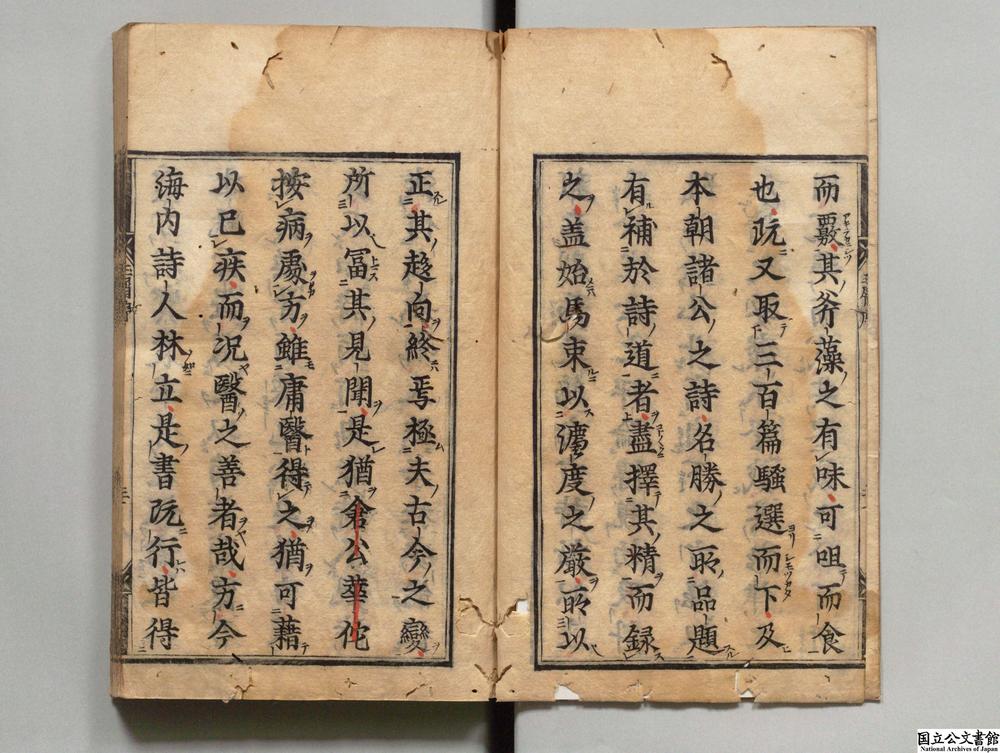 而覈其斧藻之有味可咀而食
也既又取三百篇騷選而下及
本朝諸公之詩名勝之所品題
有補於詩道者盡擇其精而録
之盖始焉束以灋度之嚴所以
正其趍向終焉極夫古今之變
所以冨其見聞是猶倉公華佗
按病處方雖庸醫得之猶可藉
以已疾而况醫之善者哉方今
海内詩人林立是書既行皆得
国立公文書館
National Archives of Japan